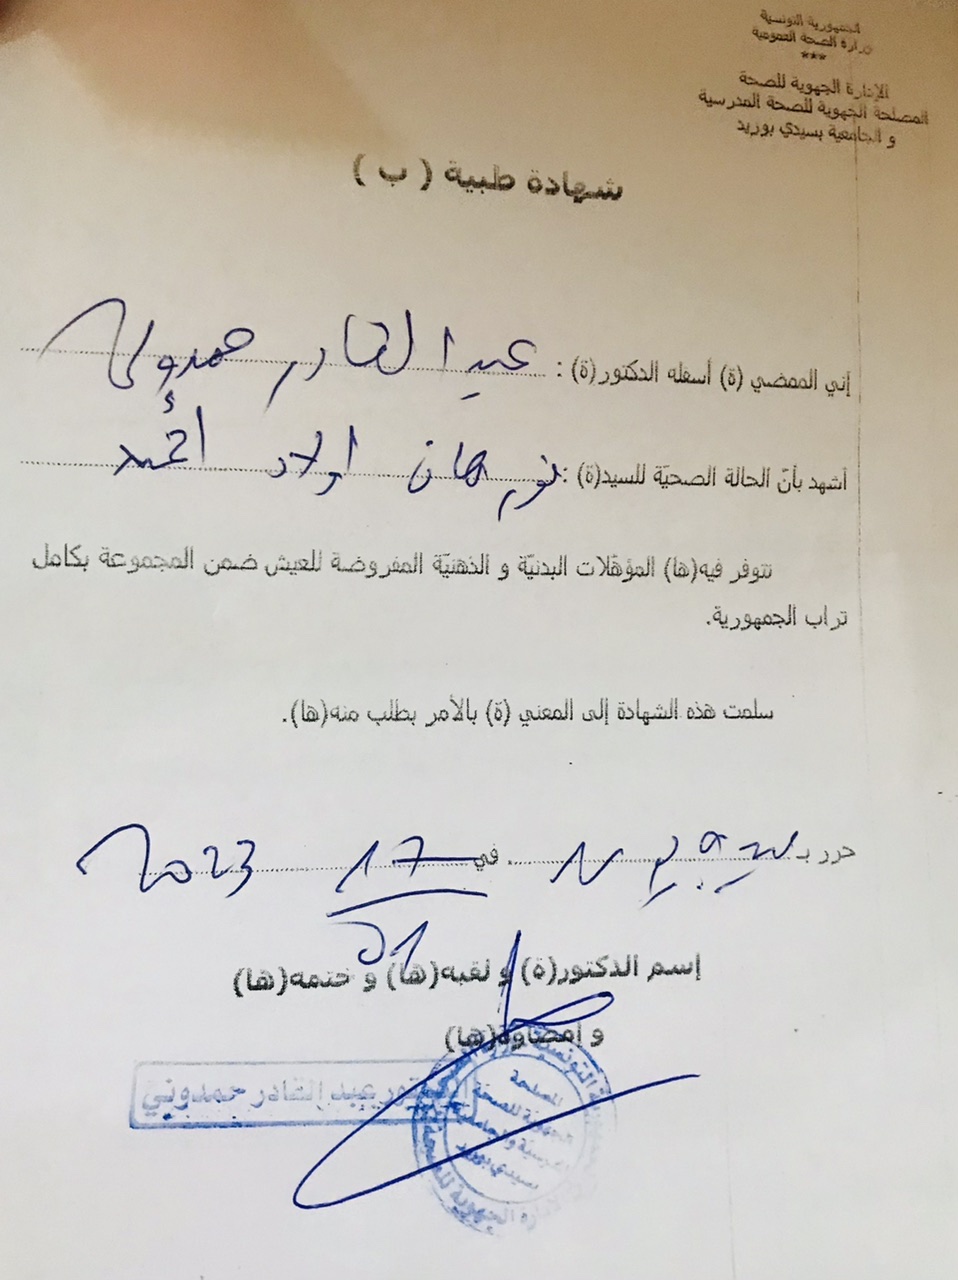 الجمهورية التونسية
وزارة الصحة العمومية
***
الإدارة الجهوية للصحة
المصلحة الجهوية للصحة المدرسية
و الجامعية بسيدي بوزيد
شهادة طبية ( ب )
إني الممضي (ة) أسفله الدكتور(ة) : عبد القادر حمدوني
أشهد بأنّ الحالة الصحيّة للسيد(ة) : نورهان اولاد أحمد
تتوفر فيه(ها) المؤهّلات البدنيّة و الذهنيّة المفروضة للعيش ضمن المجموعة بكامل
تراب الجمهورية.
سلمت هذه الشهادة إلى المعني (ة) بالأمر بطلب منه(ها).
حرر بـ في 17 2023
01
إسم الدكتور(ة) و لقبه(ها) و ختمه(ها)
و إمضاوه(ها)
الدكتور عبد القادر حمدوني
المصلحة
الجهوية للصحة
المدرسية والجامعية
بسيدي بوزيد
الإدارة الجهوية للصحة